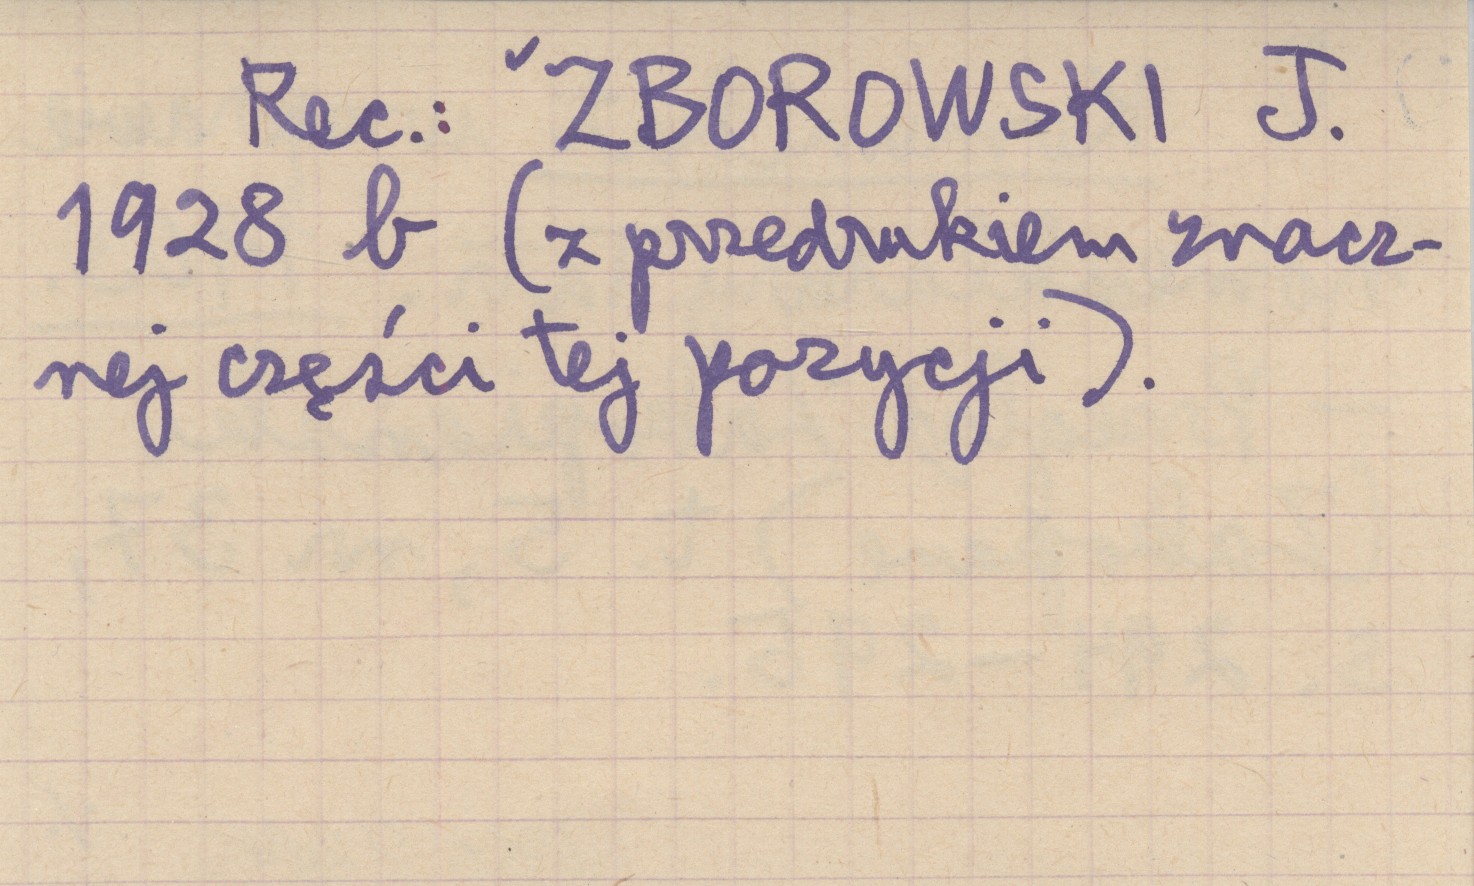 Rec.: ˇZBOROWSKI J.
1928 b (z przedrukiem znacz-
nej części tej pozycji).